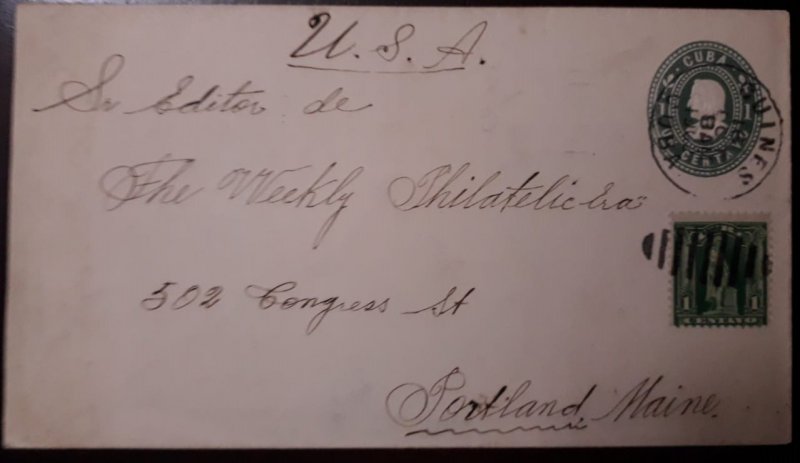 U. S. A.
Sr Editor de
The Weekly Philatelic Era
502 Congress St
Portland, Maine.
CUBA
1 CENTAVO 1
GUINES
CUBA
1 1
CENTAVO